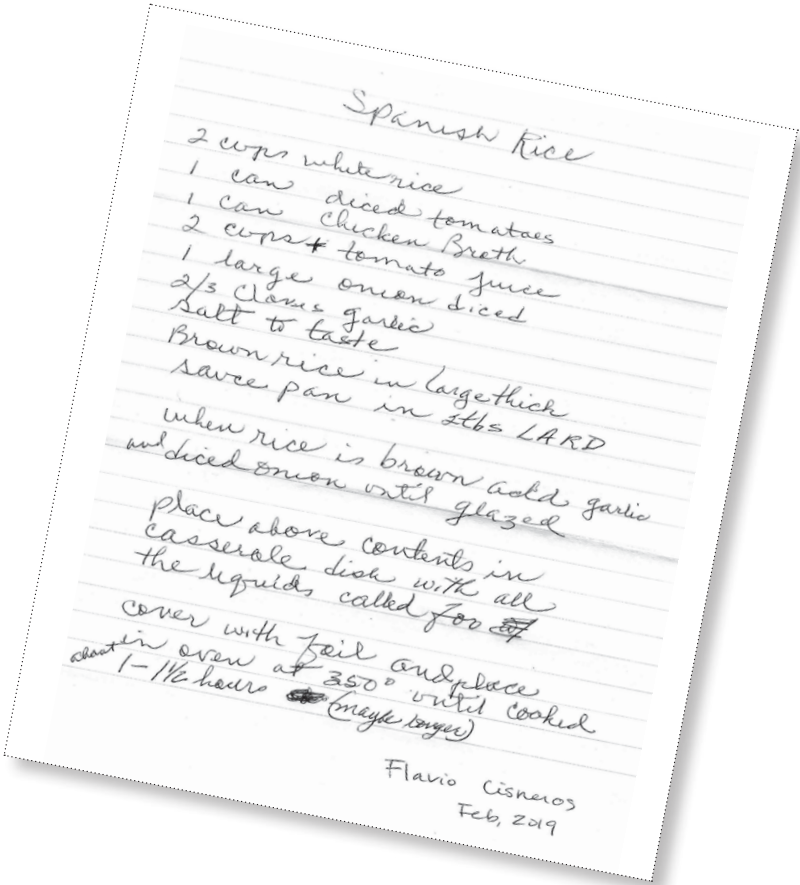 Spanish Rice
2 cups white rice
1 can diced tomatoes
1 can chicken Broth
2 cups + tomato juice
1 large onion diced
2/3 cloves garlic
salt to taste
Brown rice in large thick
sauce pan in 2tbs LARD
when rice is brown add garlic
and diced onion until glazed
place above contents in
casserole dish with all
the liquids called for
cover with foil and place
in oven at 350° until cooked
about 1 - 1 1/2 hours (maybe longer)
Flavio Cisneros
Feb, 2019